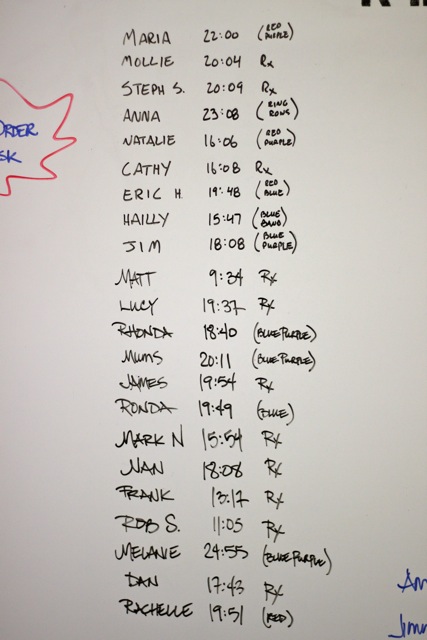 ORDER
SK
MARIA 22:00 (RED PURPLE)
MOLLIE 20:04 Rx
STEPH S. 20:09 Rx
ANNA 23:08 (RING ROWS)
NATALIE 16:06 (RED PURPLE)
CATHY 16:08 Rx
ERIC H. 19:48 (RED BLUE)
HAILLY 15:47 (BLUE BAND)
JIM 18:08 (BLUE PURPLE)
MATT 9:34 Rx
LUCY 19:37 Rx
RHONDA 18:40 (BLUE PURPLE)
MUMS 20:11 (BLUE PURPLE)
JAMES 19:54 Rx
RONDA 19:49 (BLUE)
MARK N 15:54 Rx
NAN 18:08 Rx
FRANK 13:17 Rx
ROB S. 11:05 Rx
MELANIE 24:55 (BLUE PURPLE)
DAN 17:43 Rx
RACHELLE 19:51 (RED)
Am
Jimm